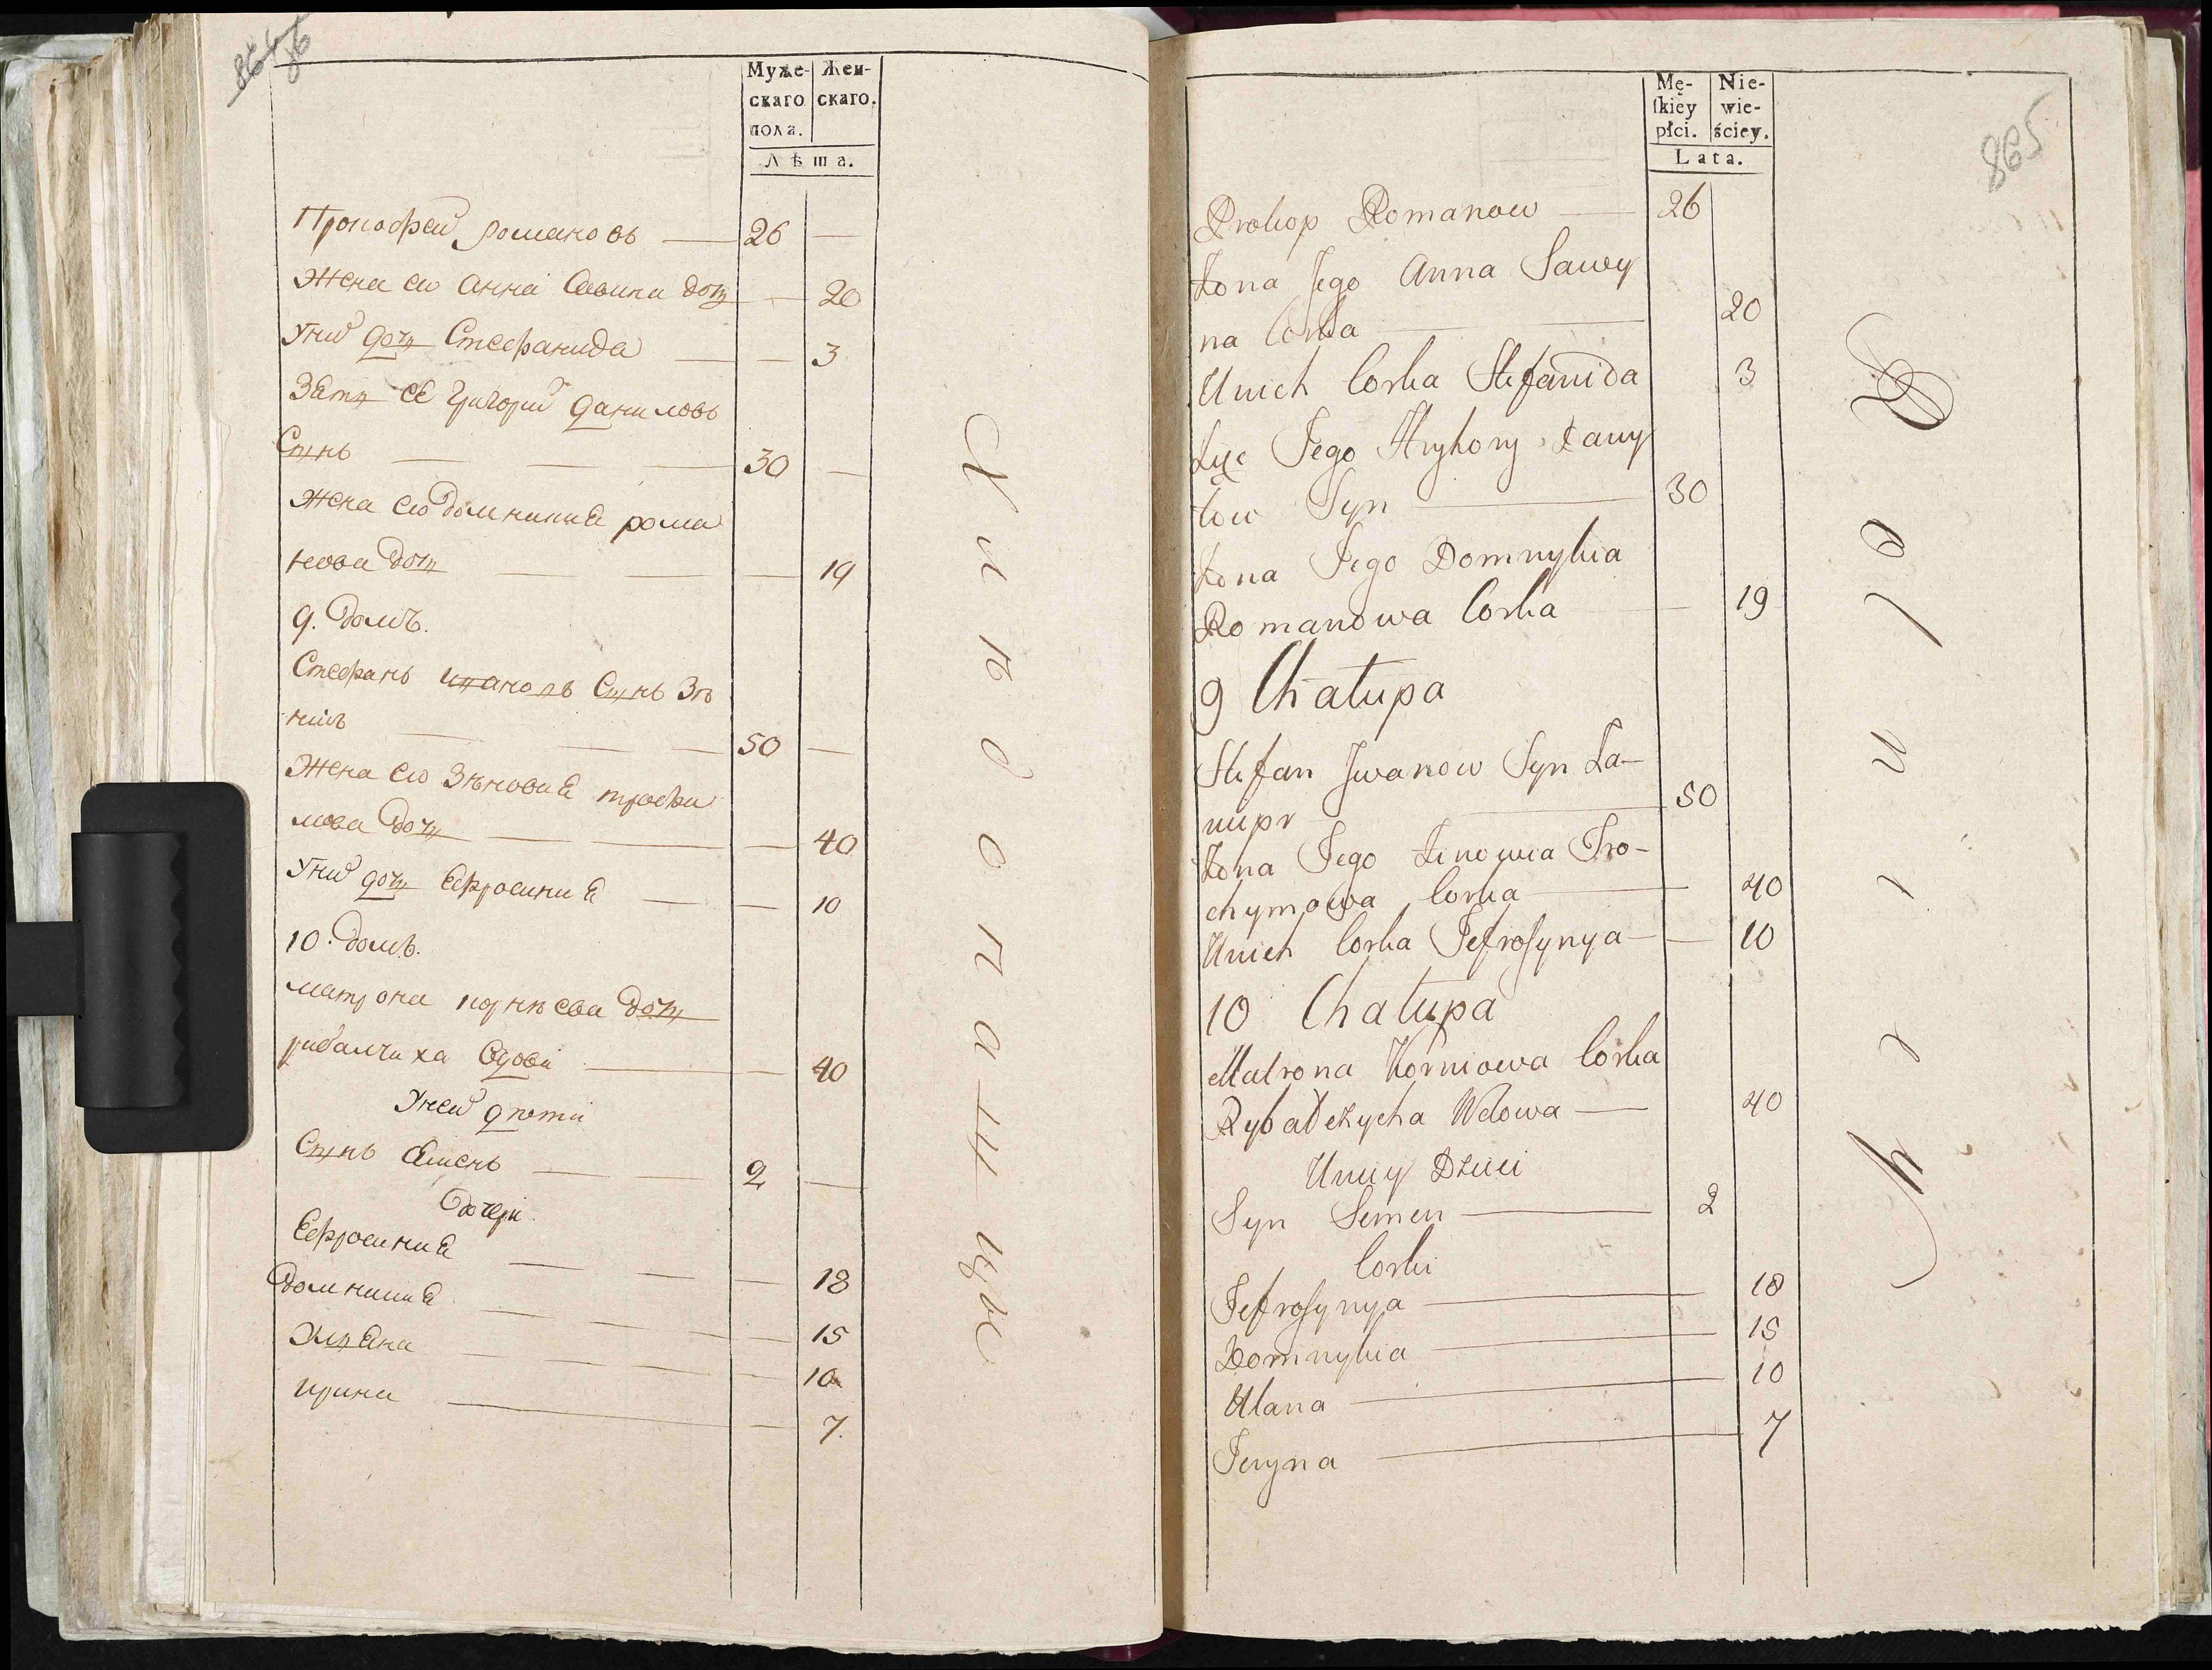 86
Муже- Жен-
скаго скаго.
пола.
Лѣта.
Прокофей романовъ — 26 —
Жена ево Анна Савина дочь — 20
У них дочь Стефанида — — 3
Зять ее Григорий даниловъ
Сынъ — — — 30 —
Жена ево домникия рома
нова дочь — — — 19
9. домъ.
Стефанъ Ивановъ Сынъ
— — — 50 —
Жена ево Зѣновия трофи
мова дочь — — — 40
У них дочь Ефросиния — — 10
10. домъ.
матрона корнѣева дочь
рибалчиха вдова — — 40
У ней дѣти
Сынъ Семенъ — — 2 —
дочери
Ефросиния — — — 18
домникия — — — — 15
Улияна — — — — 10
ирина — — 7.
865
Mę- Nie-
skiey wie-
płci. ściey.
Lata.
Prokop Romanow — 26
Żona Jego Anna Sawy
na Corka — — 20
U nich Corka Stefanida 3
Zięć Jego Hryhory Dany
łow Syn — 30
Żona Jego Domnykia
Romanowa Corka — 19
9 Chałupa
Stefan Jwanow Syn
— 50
Żona Jego Zinowia Tro-
chymowa Corka — 40
U nich Corka Jefrosynya — — 10
10 Chałupa
Matrona Korniowa Corka
Rybałczycha Wdowa — 40
U niey Dzieci
Syn Semen — 2
Corki
Jefrosynya — 18
Domnykia — 15
Ulana — 10
Jeryna — 7